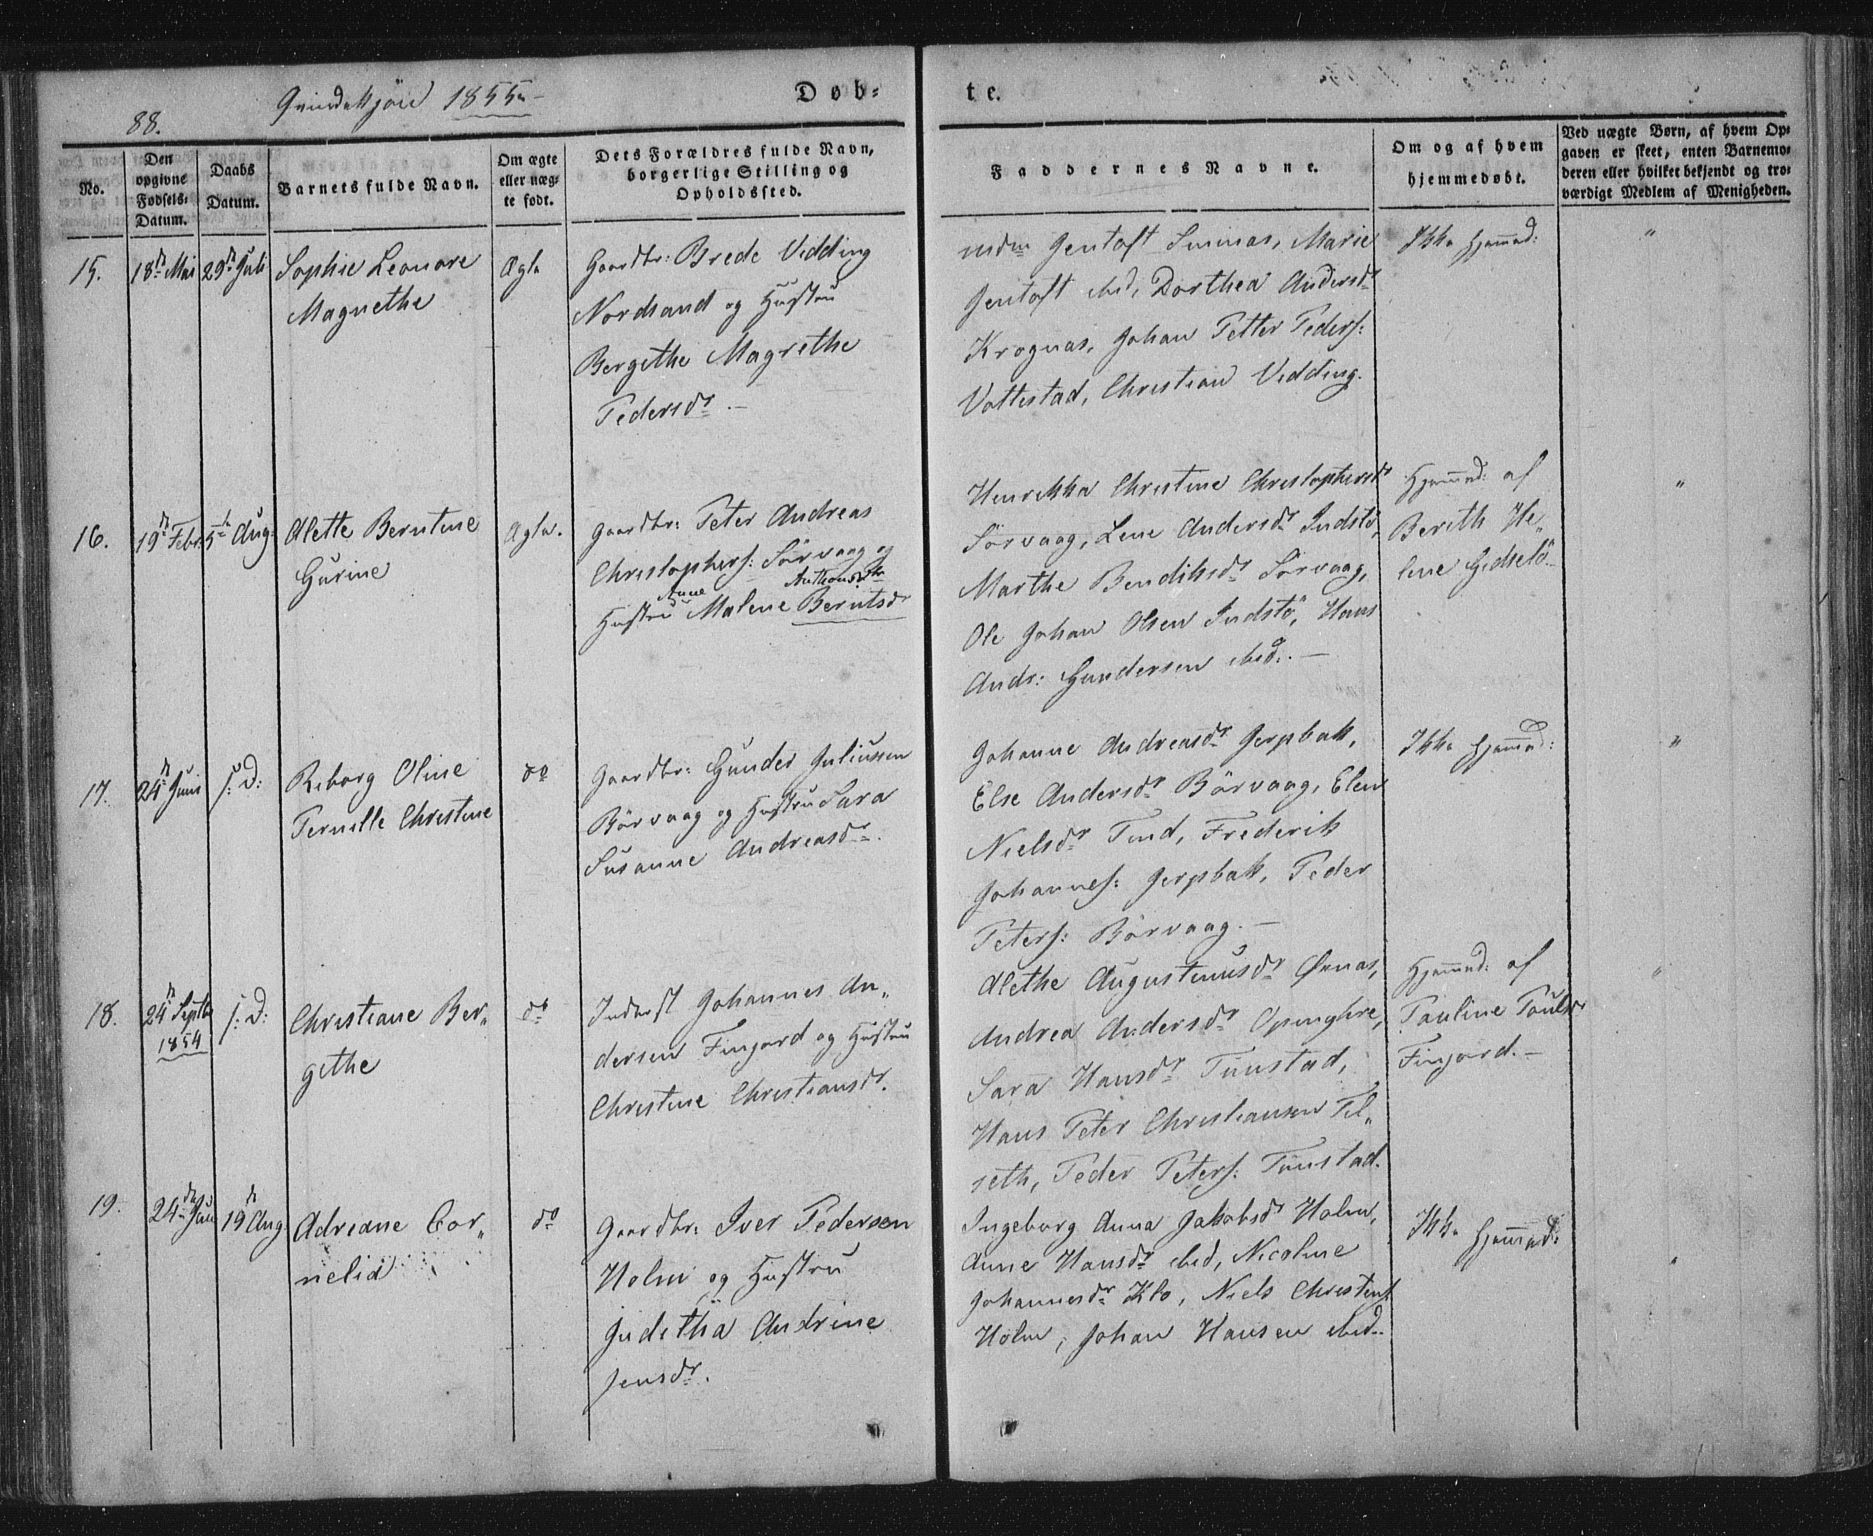 88.
Qvindekjøn 1855.
Døb-
te.
No.
Den opgivne Fødsels-Datum.
Daabs Datum.
Barnets fulde Navn.
Om ægte eller uæg-te født.
Dets Forældres fulde Navn, borgerlige Stilling og Opholdssted.
Faddernes Navne.
Om og af hvem hjemmedøbt.
Ved uægte Børn, af hvem Op-gaven er skeet, enten Barnemo-deren eller hvilket bekjendt og tro-værdigt Medlem af Menigheden.
15.
18de Mai
29de Juli
Sophie Leonore
Magnethe
Ægte
Gaardbr: Brede Vedding
Nordsand og Hustru
Bergethe Magrethe
Pedersdr. –
Gentoft Sminæs, Marie
Gentoft ibid, Dorthea Andersdr
Krognæs, Johan Petter Peders:
Vottestad, Christian Vedding.
Ikke hjemmd:
"
16.
19de Febr.
5te Aug.
Alette Berntine
Gurine
Ægte.
Gaardbr: Peter Andreas
Christophers: Sørvaag og
Anne Anthonsdtr
Hustru Malene Berntsdr
Henrikke Christine Christophersdr
Sørvaag, Lene Andersdr Indstø,
Marthe Bendiksdr Sørvaag,
Ole Johan Olsen Indstø, Hans
Andr: Gundersen ibid. –
Hjemmd: af
Berith He-
lene Gidselö
"
17.
24de Juni
s: D:
Reborg Oline
Pernille Christine
do
Gaardbr: Gunder Juliussen
Börvaag og Hustru Sara
Susanne Andreasdr.
Johanne Andreasdr Jerpbak,
Else Andersdr Börvaag, Elen
Nielsdr Tind, Frederik
Johannes: Jerpbak, Peder
Peters: Börvaag. –
Ikke hjemmd:
"
18.
24de Septb
1854
s: D:
Christiane Ber-
gethe
do
Inderst Johannes An-
dersen Finjord og Hustru
Christine Christiansdr.
Alethe Augustinusdr Ørnæs,
Andrea Andersdr Openghre,
Sara Hansdr Tunstad,
Hans Peter Christiansen Til-
seth, Peder Peters: Tunstad.
Hjemmd: af
Pauline Paulsdr
Finjord. –
"
19.
24de Juni
19de Aug.
Adriane Cor-
nelia
do
Gaardbr: Iver Pedersen
Holm og Hustru
Juditha Andrine
Jensdr.
Ingeborg Anna Jakobsdr Holm,
Anne Hansdr ibid, Nicoline
Johannesdr Klo, Niels Christens:
Holm, Johan Hansen ibid.
Ikke hjemmd:
"